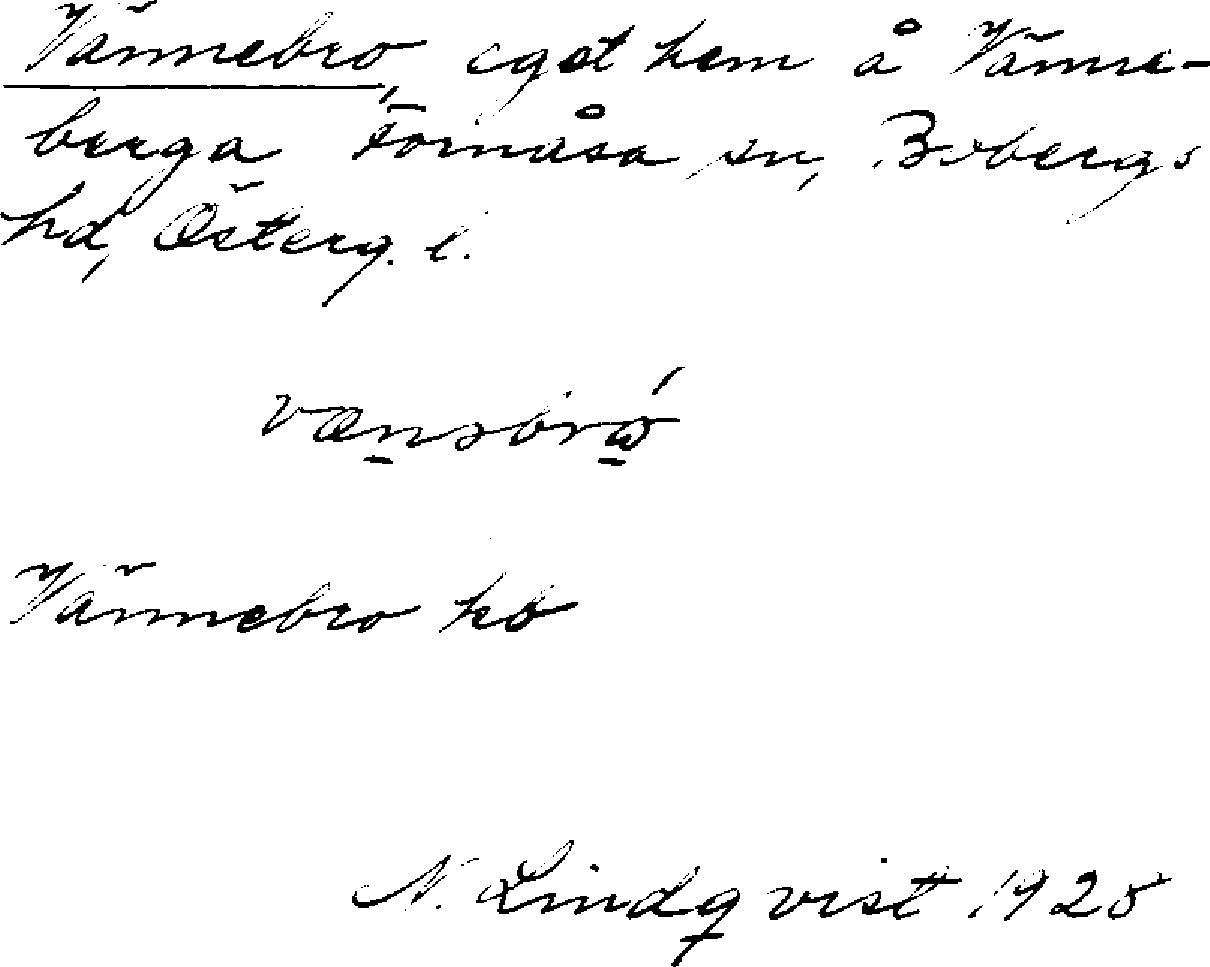 Vännebro, eget hem å Vänne-
berga Fornåsa sn, Bobergs
hd, Österg. l.
Vännebro kb
N. Lindqvist 1925